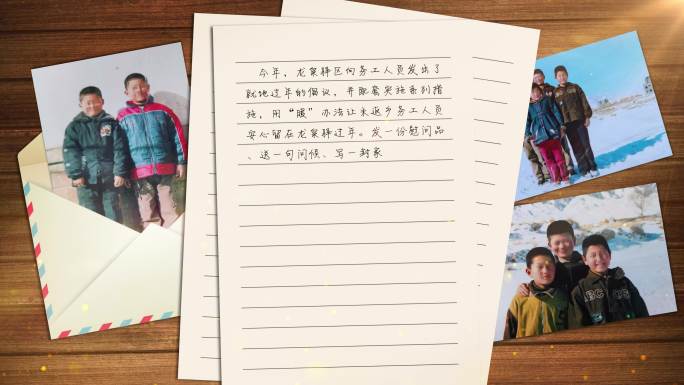 今年，龙泉驿区向务工人员发出了
就地过年的倡议，并配套实施系列措
施，用“暖”办法让未返乡务工人员
安心留在龙泉驿过年。发一份慰问品
、送一句问候、写一封家